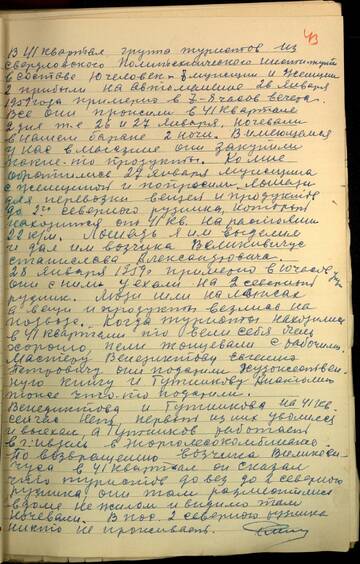 43
В 41 квартал группа туристов из
Свердловского Политехнического института
в составе 10 человек - 8 мущин и женщин
2 прибыли на автомашине 26 января
1959 года примерно в 7-8 часов вечера.
Все они прожили в 41 квартале
2 дня т.е 26 и 27 января, ночевали
в нашем бараке 2 ночи. В имеющемся
у нас в магазине они закупили
какие-то продукты. Ко мне
обратились 27 января мущина
с женщиной и попросили лошадь
для перевозки вещей и продуктов
до 2го северного рудника, который
находится от 41 кв. на расстоянии
22 клм. Лошадь я им выделил
и дал им возчика Великявичус
Станислава Александровича.
28 января 1959г примерно в 10 часов
они с ним уехали на 2 северный
рудник. Люди шли на лыжах
а вещи и продукты везлись на
подводе. Когда туристы находились
в 41 квартале то вели себя
хорошо, пели танцевали с рабочими.
Мастеру Венедиктову Евгению
Петровичу они подарили художествен-
ную книгу и Тутинкову Анатолию
тоже что-то подарили.
Венедиктова и Тутинкова на 41 кв.
сейчас нет, первый из них уволился
и выехал, а Тутинков работает
в г. Ивдель в Энерголесокомбинате.
По возвращению возчика Великяви-
чуса в 41 квартал он сказал
что туристов довез до 2 северного
рудника они там разместились
в доме не жилом и видимо там
ночевали. В пос. 2 северного рудника
никто не проживает.